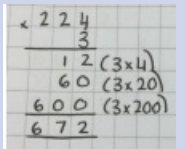 × 2 2 4
3
1 2 (3×4)
6 0 (3×20)
6 0 0 (3×200)
6 7 2